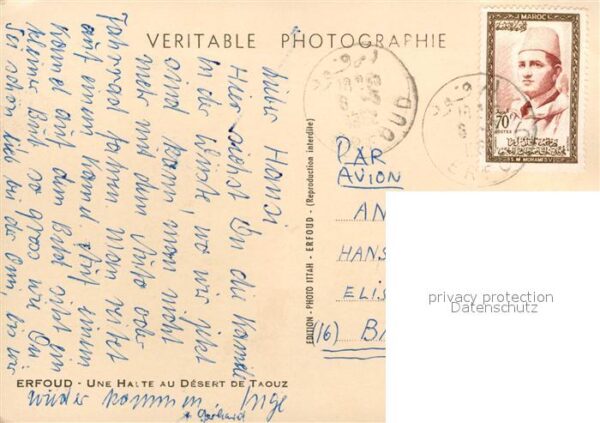 VERITABLE PHOTOGRAPHIE
MAROC
70F
POSTES
S.M. MOHAMED V
ERFOUD
Lieber Hansi
Hier siehst Du die Kamele
in der Wüste, wo wir jetzt
sind. Kann man nicht
mehr mit dem Auto oder
Fahrrad fahren, man reitet
auf einem Kamel. Auf einem
Kamel auf dem Bild sitzt ein
kleiner Bub so gross wie Du
Sei schön lieb bei der Omi, bis wir
wieder kommen. Inge
+ Gerhard
EDITION - PHOTO ITTAH - ERFOUD - (Reproduction interdite)
PAR
AVION
AN
HANS
ELIS
(16) BA
privacy protection
Datenschutz
ERFOUD - UNE HALTE AU DÉSERT DE TAOUZ